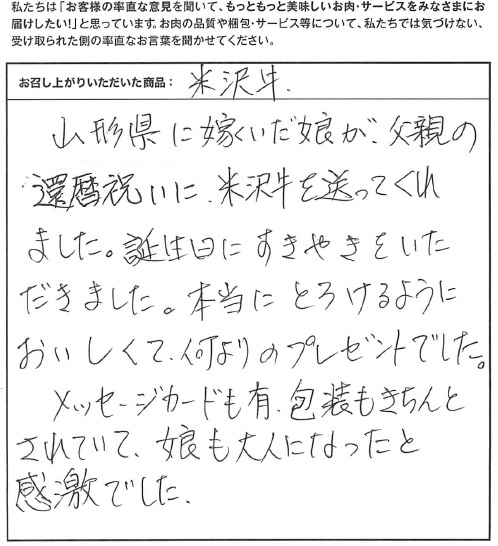 私たちは「お客様の率直な意見を聞いて、もっともっと美味しいお肉・サービスをみなさまにお
届けしたい!」と思っています。お肉の品質や梱包・サービス等について、私たちでは気づけない、
受け取られた側の率直なお言葉を聞かせてください。
お召し上がりいただいた商品： 米沢牛.
山形県に嫁いだ娘が、父親の
還暦祝いに、米沢牛を送ってくれ
ました。誕生日にすきやきをいた
だきました。本当にとろけるように
おいしくて、何よりのプレゼントでした。
メッセージカードも有、包装もきちんと
されていて、娘も大人になったと
感激でした.